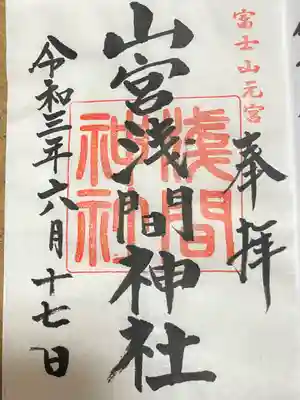 富士山元宮
奉拝
山宮浅間神社
淺間神社
令和三年六月十七日